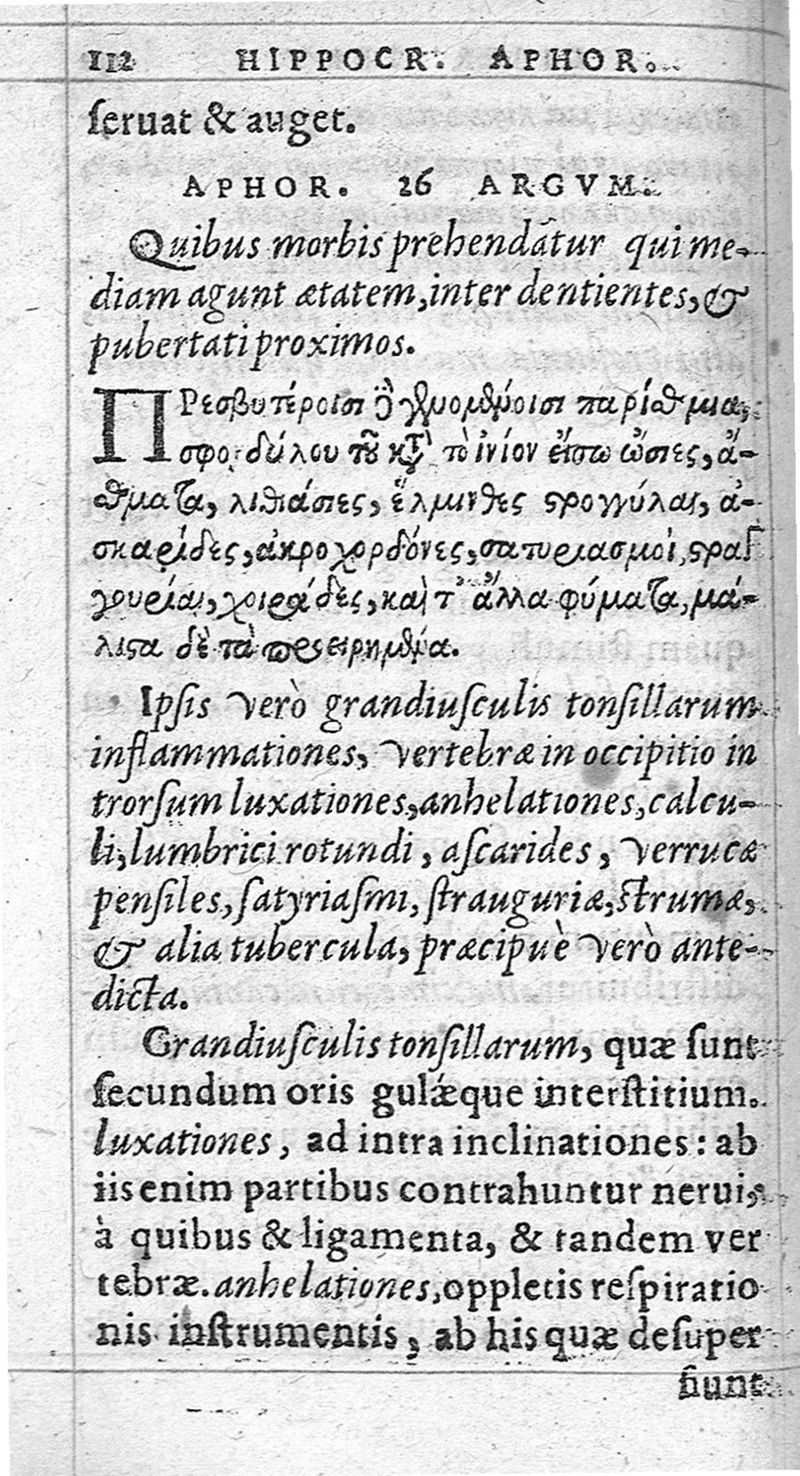 112 HIPPOCR. APHOR.
seruat & auget.
APHOR. 26 ARGVM.
Quibus morbis prehendātur qui me-
diam agunt ætatem, inter dentientes, &
pubertati proximos.
ΠΡεσβυτέροισι ἢ γινομένοισι παρίσθμια,
σφονδύλου τοῦ κατὰ τὸ ἰνίον εἴσω ὤσιες, ἄ-
σθματα, λιθιάσιες, ἕλμινθες στρογγύλαι, ἀ-
σκαρίδες, ἀκροχορδόνες, σατυριασμοὶ, στραγ
γουρίαι, χοιράδες, καὶ τ' ἄλλα φύματα, μά-
λιστα δὲ τὰ προειρημένα.
Ipsis verò grandiusculis tonsillarum
inflammationes, vertebræ in occipitio in
trorsum luxationes, anhelationes, calcu-
li, lumbrici rotundi, ascarides, verrucæ
pensiles, satyriasmi, strauguriæ, strumæ,
& alia tubercula, præcipuè verò ante-
dicta.
Grandiusculis tonsillarum, quæ sunt
secundum oris gulæque interstitium.
luxationes, ad intra inclinationes: ab
iis enim partibus contrahuntur nerui,
à quibus & ligamenta, & tandem ver
tebræ. anhelationes, oppletis respiratio
nis instrumentis, ab his quæ desuper
fiunt